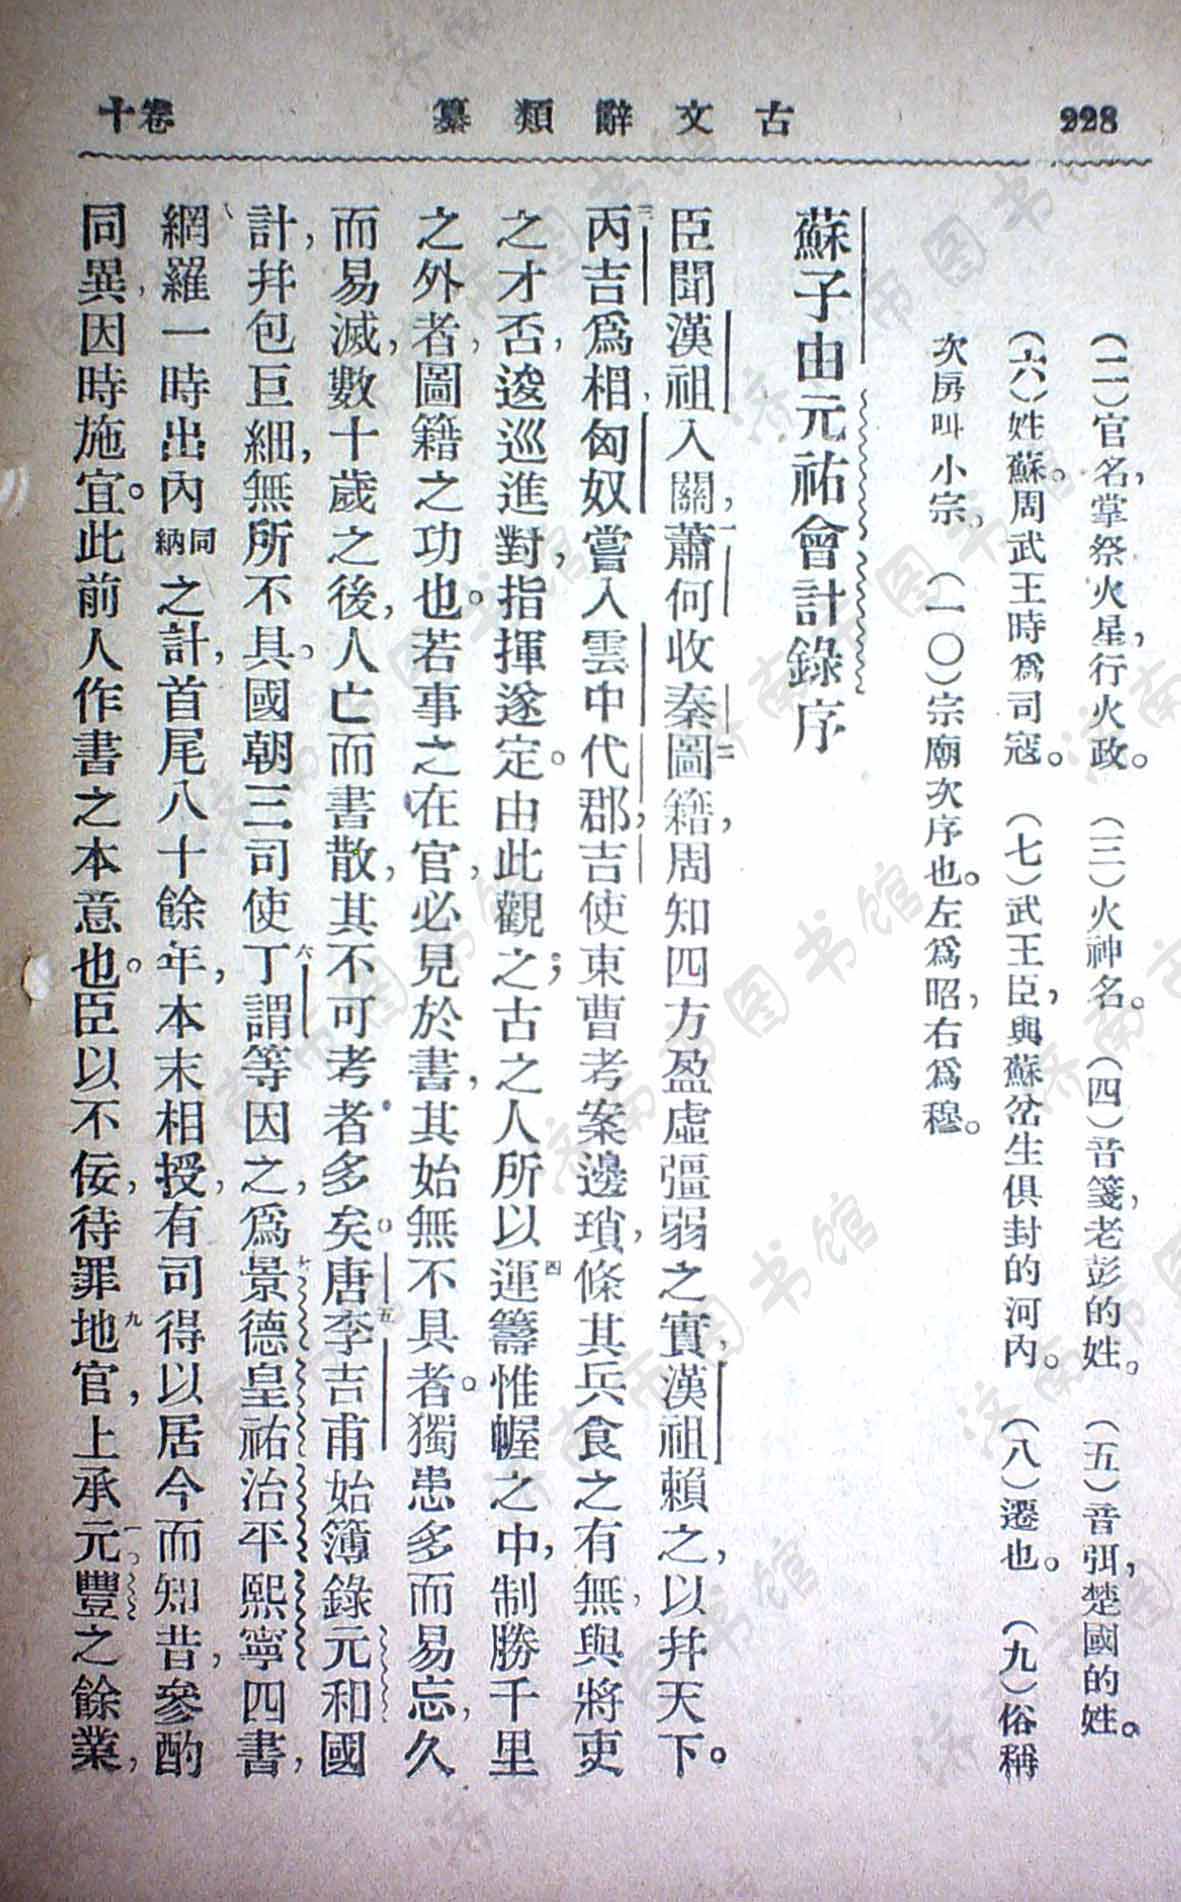 228
古文辭類纂
卷十
(二)官名,掌祭火星,行火政。 (三)火神名。 (四)音箋,老彭的姓。 (五)音弭,楚國的姓。
(六)姓蘇。周武王時爲司寇。 (七)武王臣,與蘇忿生俱封的河內。 (八)遷也。 (九)俗稱
次房叫小宗, (一〇)宗廟次序也。左爲昭,右爲穆。
蘇子由元祐會計錄序
臣聞漢祖入關,蕭何收秦圖籍,周知四方盈虛彊弱之實,漢祖賴之,以幷天下。
丙吉爲相,匈奴嘗入雲中代郡,吉使東曹考案邊瑣,條其兵食之有無,與將吏
之才否,逡巡進對,指揮遂定。由此觀之;古之人所以運籌惟幄之中,制勝千里
之外者,圖籍之功也。若事之在官,必見於書,其始無不具者。獨患多而易忘,久
而易滅,數十歲之後,人亡而書散,其不可考者多矣。唐李吉甫始簿錄元和國
計,幷包巨細,無所不具。國朝三司使丁謂等因之,爲景德皇祐治平熙寧四書,
網羅一時出內同納之計,首尾八十餘年,本末相授,有司得以居今而知昔,參酌
同異,因時施宜。此前人作書之本意也。臣以不佞,待罪地官,上承元豐之餘業,